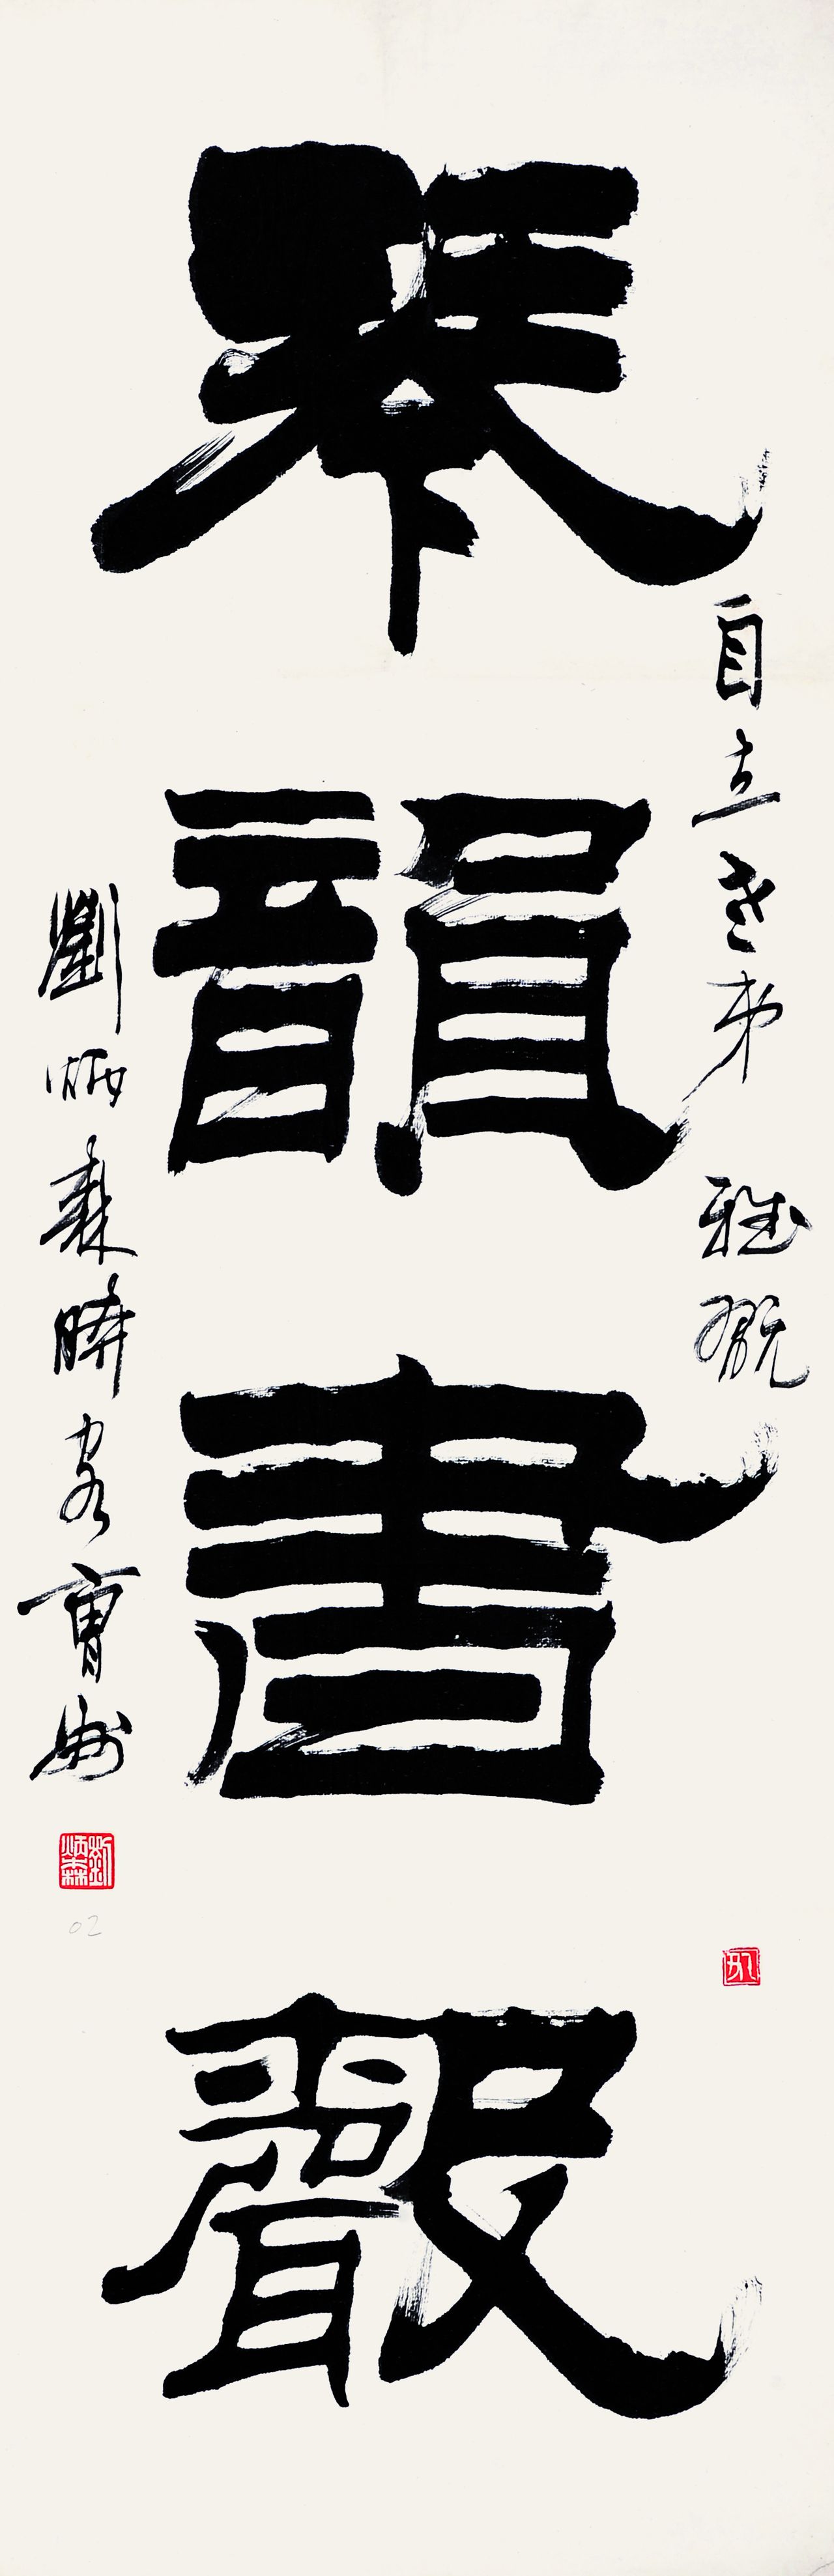 自立老弟 雅翫
琴韻書聲
劉炳森時客曹州
劉炳森
02